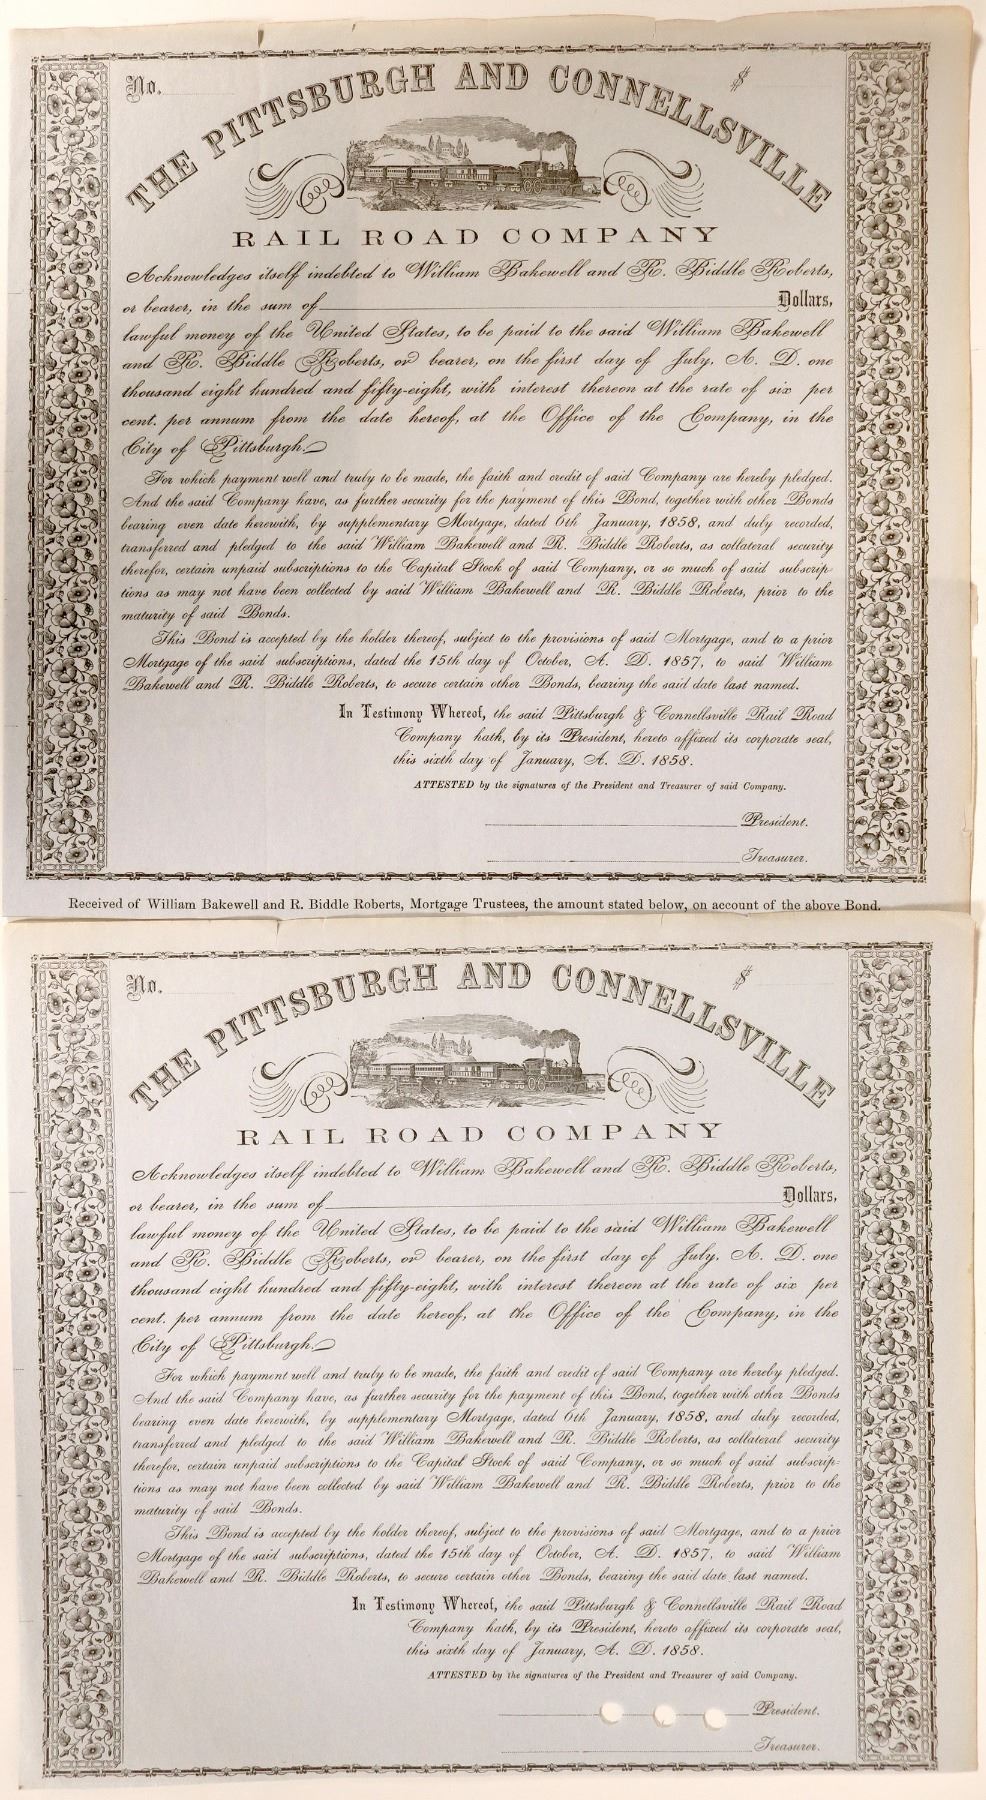 No.
$
THE PITTSBURGH AND CONNELLSVILLE
RAIL ROAD COMPANY
Acknowledges itself indebted to William Bakewell and R. Biddle Roberts,
or bearer, in the sum of Dollars,
lawful money of the United States, to be paid to the said William Bakewell
and R. Biddle Roberts, or bearer, on the first day of July, A. D. one
thousand eight hundred and fifty-eight, with interest thereon at the rate of six per
cent. per annum from the date hereof, at the Office of the Company, in the
City of Pittsburgh.
For which payment well and truly to be made, the faith and credit of said Company are hereby pledged.
And the said Company have, as further security for the payment of this Bond, together with other Bonds
bearing even date herewith, by supplementary Mortgage, dated 6th January, 1858, and duly recorded,
transferred and pledged to the said William Bakewell and R. Biddle Roberts, as collateral security
therefor, certain unpaid subscriptions to the Capital Stock of said Company, or so much of said subscrip-
tions as may not have been collected by said William Bakewell and R. Biddle Roberts, prior to the
maturity of said Bonds.
This Bond is accepted by the holder thereof, subject to the provisions of said Mortgage, and to a prior
Mortgage of the said subscriptions, dated the 15th day of October, A. D. 1857, to said William
Bakewell and R. Biddle Roberts, to secure certain other Bonds, bearing the said date last named.
In Testimony Whereof, the said Pittsburgh & Connellsville Rail Road
Company hath, by its President, hereto affixed its corporate seal,
this sixth day of January, A. D. 1858.
ATTESTED by the signatures of the President and Treasurer of said Company.
President.
Treasurer.
Received of William Bakewell and R. Biddle Roberts, Mortgage Trustees, the amount stated below, on account of the above Bond.
No.
$
THE PITTSBURGH AND CONNELLSVILLE
RAIL ROAD COMPANY
Acknowledges itself indebted to William Bakewell and R. Biddle Roberts,
or bearer, in the sum of Dollars,
lawful money of the United States, to be paid to the said William Bakewell
and R. Biddle Roberts, or bearer, on the first day of July, A. D. one
thousand eight hundred and fifty-eight, with interest thereon at the rate of six per
cent. per annum from the date hereof, at the Office of the Company, in the
City of Pittsburgh.
For which payment well and truly to be made, the faith and credit of said Company are hereby pledged.
And the said Company have, as further security for the payment of this Bond, together with other Bonds
bearing even date herewith, by supplementary Mortgage, dated 6th January, 1858, and duly recorded,
transferred and pledged to the said William Bakewell and R. Biddle Roberts, as collateral security
therefor, certain unpaid subscriptions to the Capital Stock of said Company, or so much of said subscrip-
tions as may not have been collected by said William Bakewell and R. Biddle Roberts, prior to the
maturity of said Bonds.
This Bond is accepted by the holder thereof, subject to the provisions of said Mortgage, and to a prior
Mortgage of the said subscriptions, dated the 15th day of October, A. D. 1857, to said William
Bakewell and R. Biddle Roberts, to secure certain other Bonds, bearing the said date last named.
In Testimony Whereof, the said Pittsburgh & Connellsville Rail Road
Company hath, by its President, hereto affixed its corporate seal,
this sixth day of January, A. D. 1858.
ATTESTED by the signatures of the President and Treasurer of said Company.
President.
Treasurer.